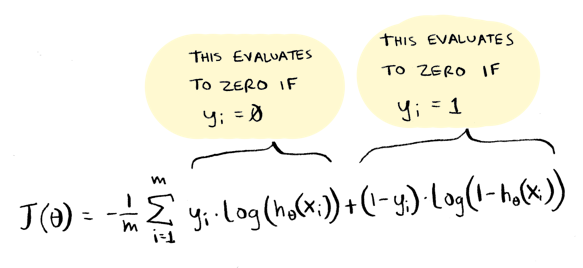 THIS EVALUATES
TO ZERO IF
yᵢ = 0
THIS EVALUATES
TO ZERO IF
yᵢ = 1
J(θ) = -1/m ∑ᵢ₌₁ᵐ yᵢ·log(h_θ(xᵢ)) + (1-yᵢ)·log(1-h_θ(xᵢ))